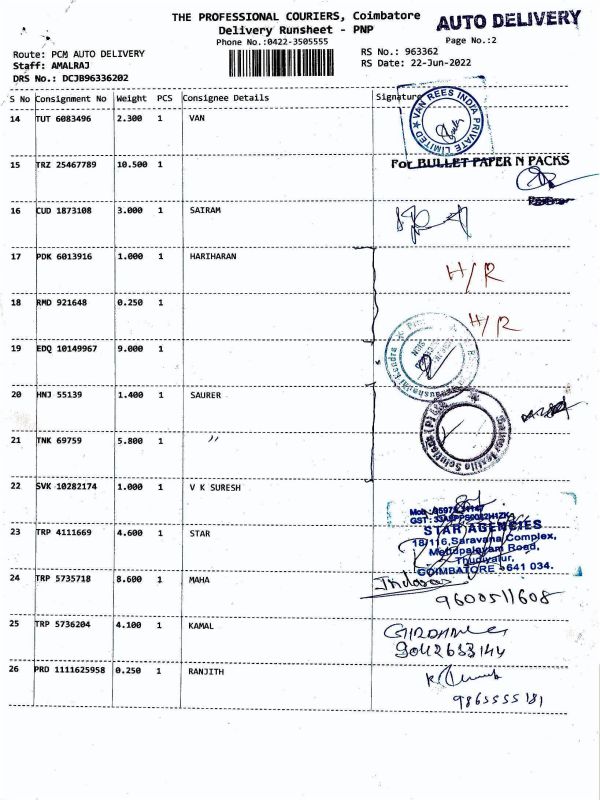 THE PROFESSIONAL COURIERS, Coimbatore
AUTO DELIVERY
Delivery Runsheet - PNP
Phone No.:0422-3505555
Page No.:2
Route: PCM AUTO DELIVERY
RS No.: 963362
Staff: AMALRAJ
RS Date: 22-Jun-2022
DRS No.: DCJB96336202
S No Consignment No Weight PCS Consignee Details Signature
14 TUT 6083496 2.300 1 VAN
VAN REES INDIA PRIVATE LIMITED
15 TRZ 25467789 10.500 1
For BULLET PAPER N PACKS
16 CUD 1873108 3.000 1 SAIRAM
17 PDK 6013916 1.000 1 HARIHARAN
H/R
18 RMD 921648 0.250 1
H/R
19 EDQ 10149967 9.000 1
20 HNJ 55139 1.400 1 SAURER
21 TNK 69759 5.800 1 〃
22 SVK 10282174 1.000 1 V K SURESH
23 TRP 4111669 4.600 1 STAR
STAR AGENCIES
18/116, Saravana Complex,
Mettupalayam Road,
Thudiyalur,
COIMBATORE - 641 034.
24 TRP 5735718 8.600 1 MAHA
9600511608
25 TRP 5736204 4.100 1 KAMAL
9042653144
26 PRD 1111625958 0.250 1 RANJITH
9865555181